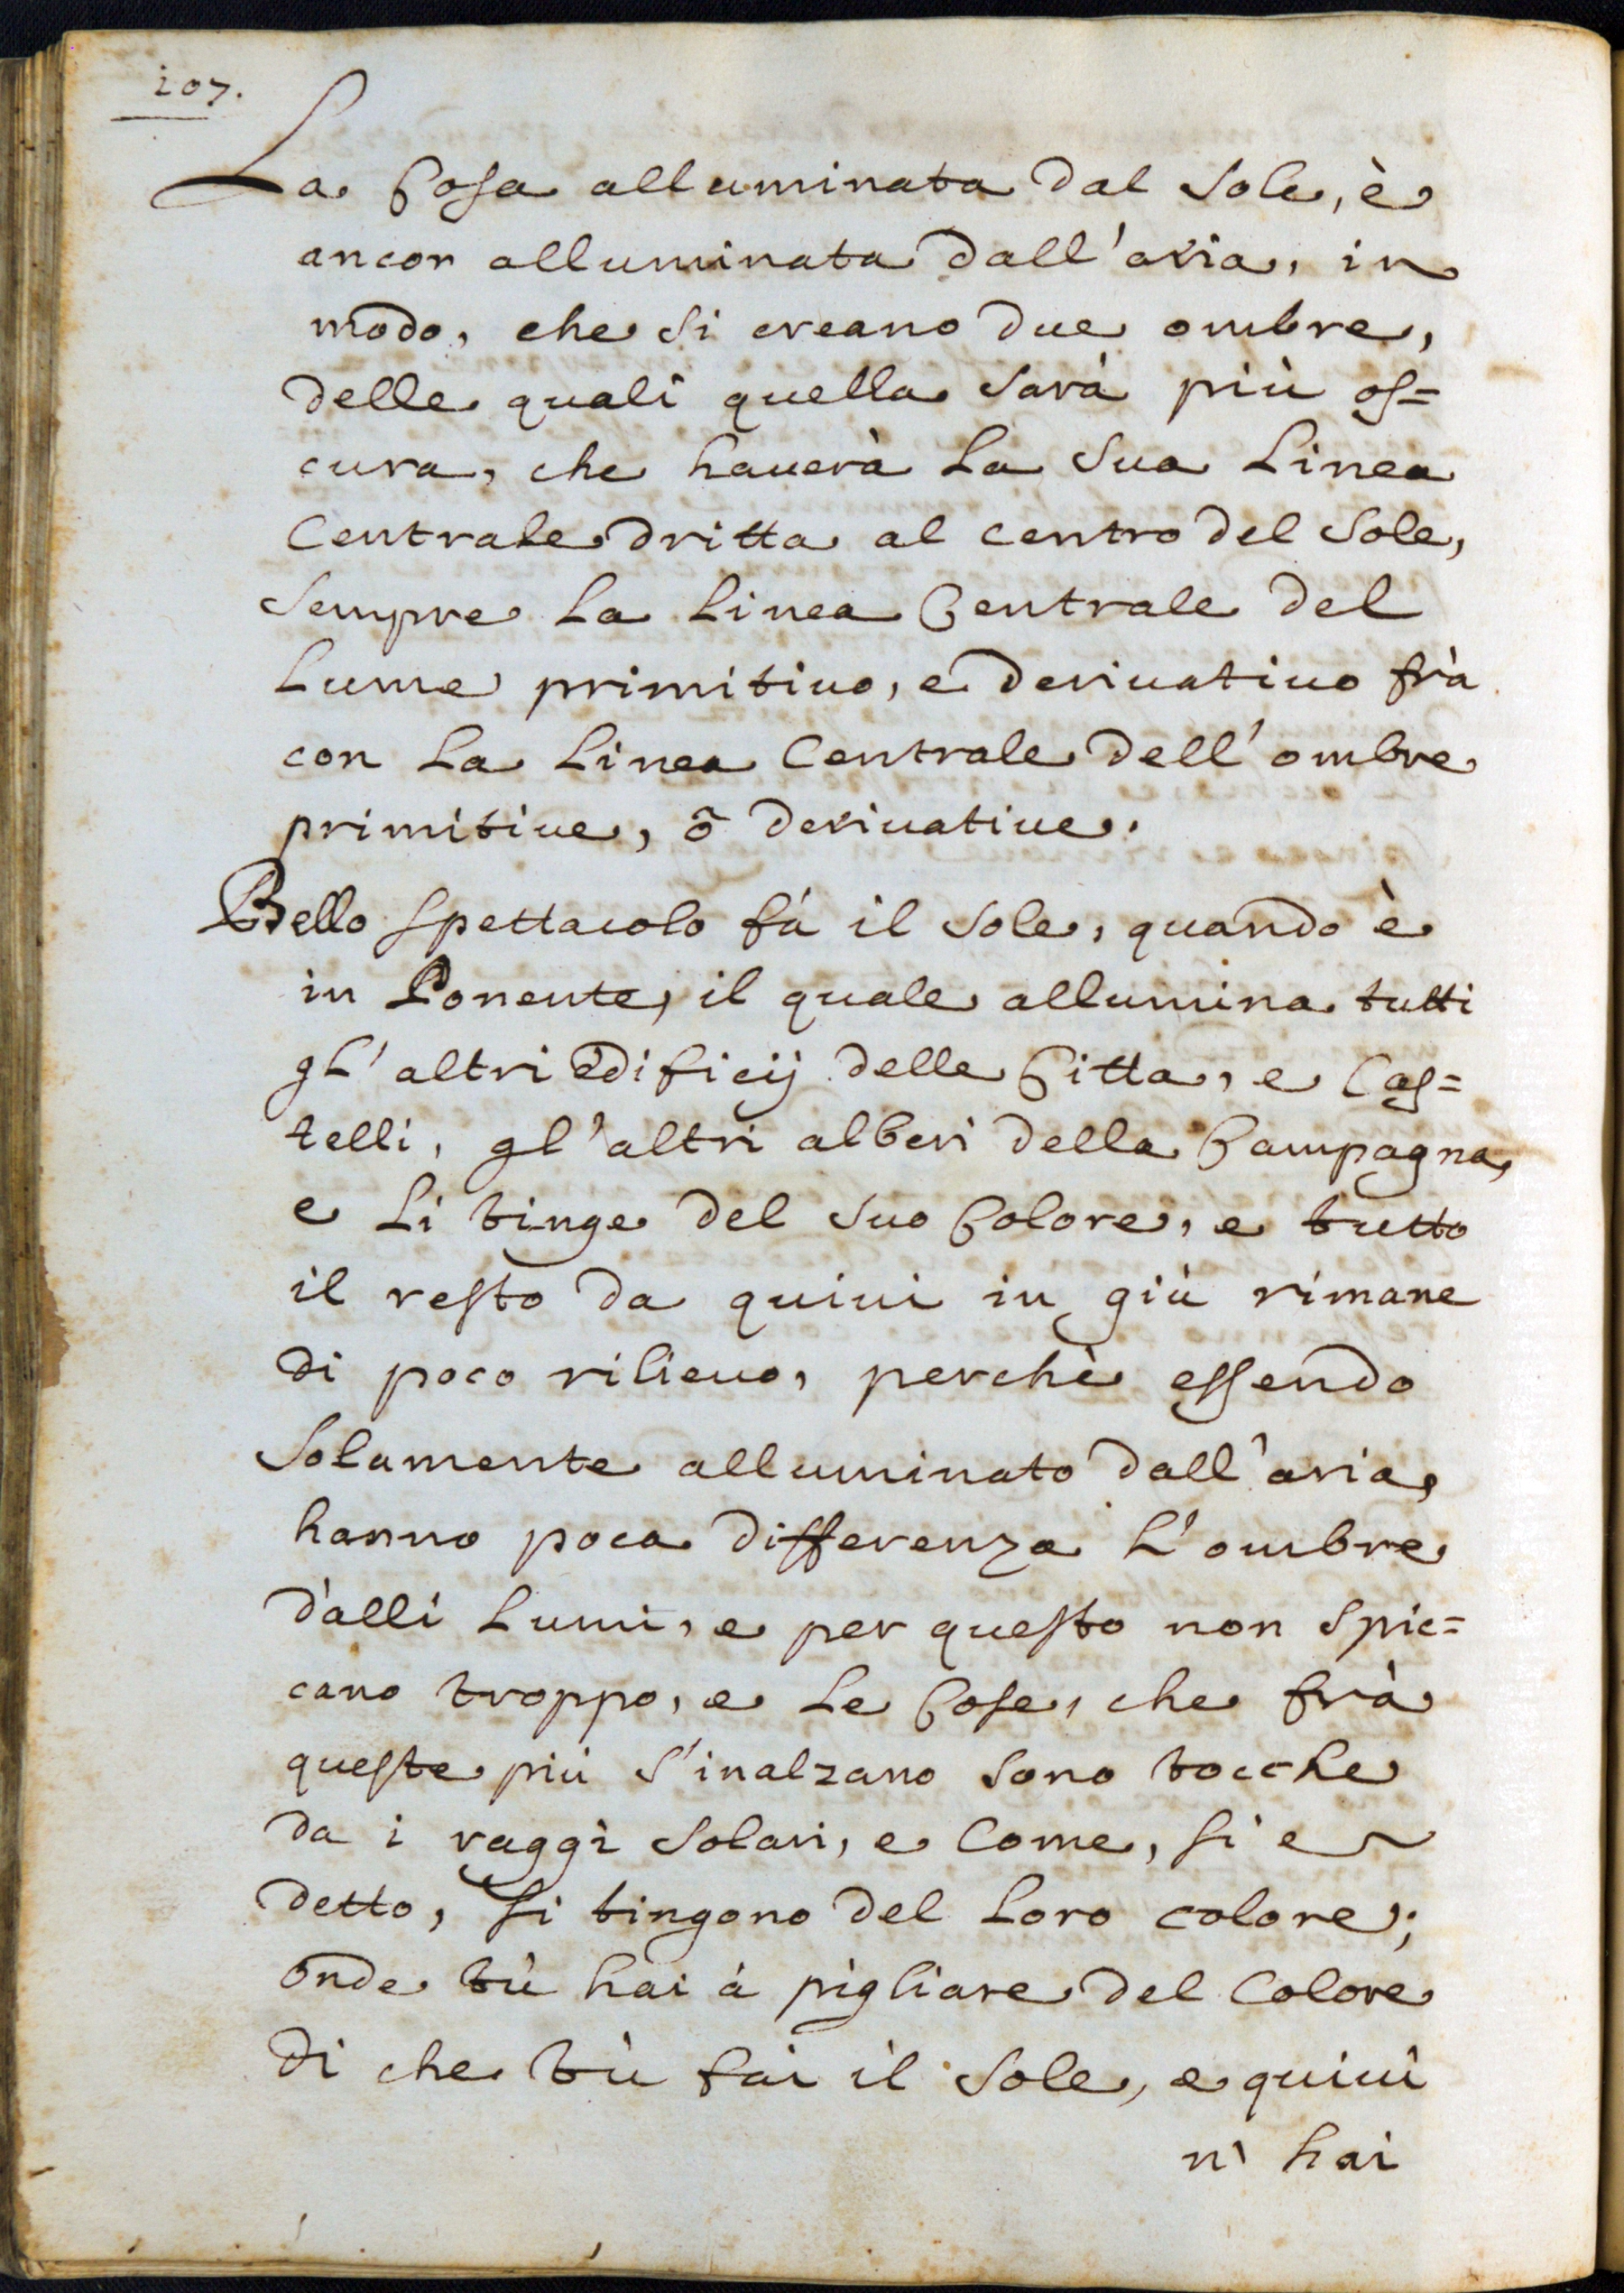 107.
La Cosa alluminata dal Sole, è
ancor alluminata dall'aria, in
modo, che si creano due ombre,
delle quali quella sarà più os=
cura, che hauerà la sua Linea
Centrale dritta al centro del Sole,
Sempre la Linea Centrale del
Lume primitiuo, e deriuatiuo frà
con la Linea Centrale dell'ombre
primitiue, ò deriuatiue.
Bello spettacolo fà il Sole, quando è
in Ponente, il quale allumina tutti
gl'altri Edificij delle Città, e Cas=
telli, gl'altri alberi della Campagna,
e li tinge del suo Colore, e tutto
il resto da quiui in giù rimane
di poco rilieuo, perchè essendo
Solamente alluminato dall'aria,
hanno poca differenza l'ombre
dalli Lumi, e per questo non spic=
cano troppo, e le Cose, che frà
queste più s'inalzano sono tocche
da i raggi Solari, e Come, si e
detto, si tingono del loro colore;
onde tù hai à pigliare del Colore
di che tù fai il Sole, e quiui
n' hai